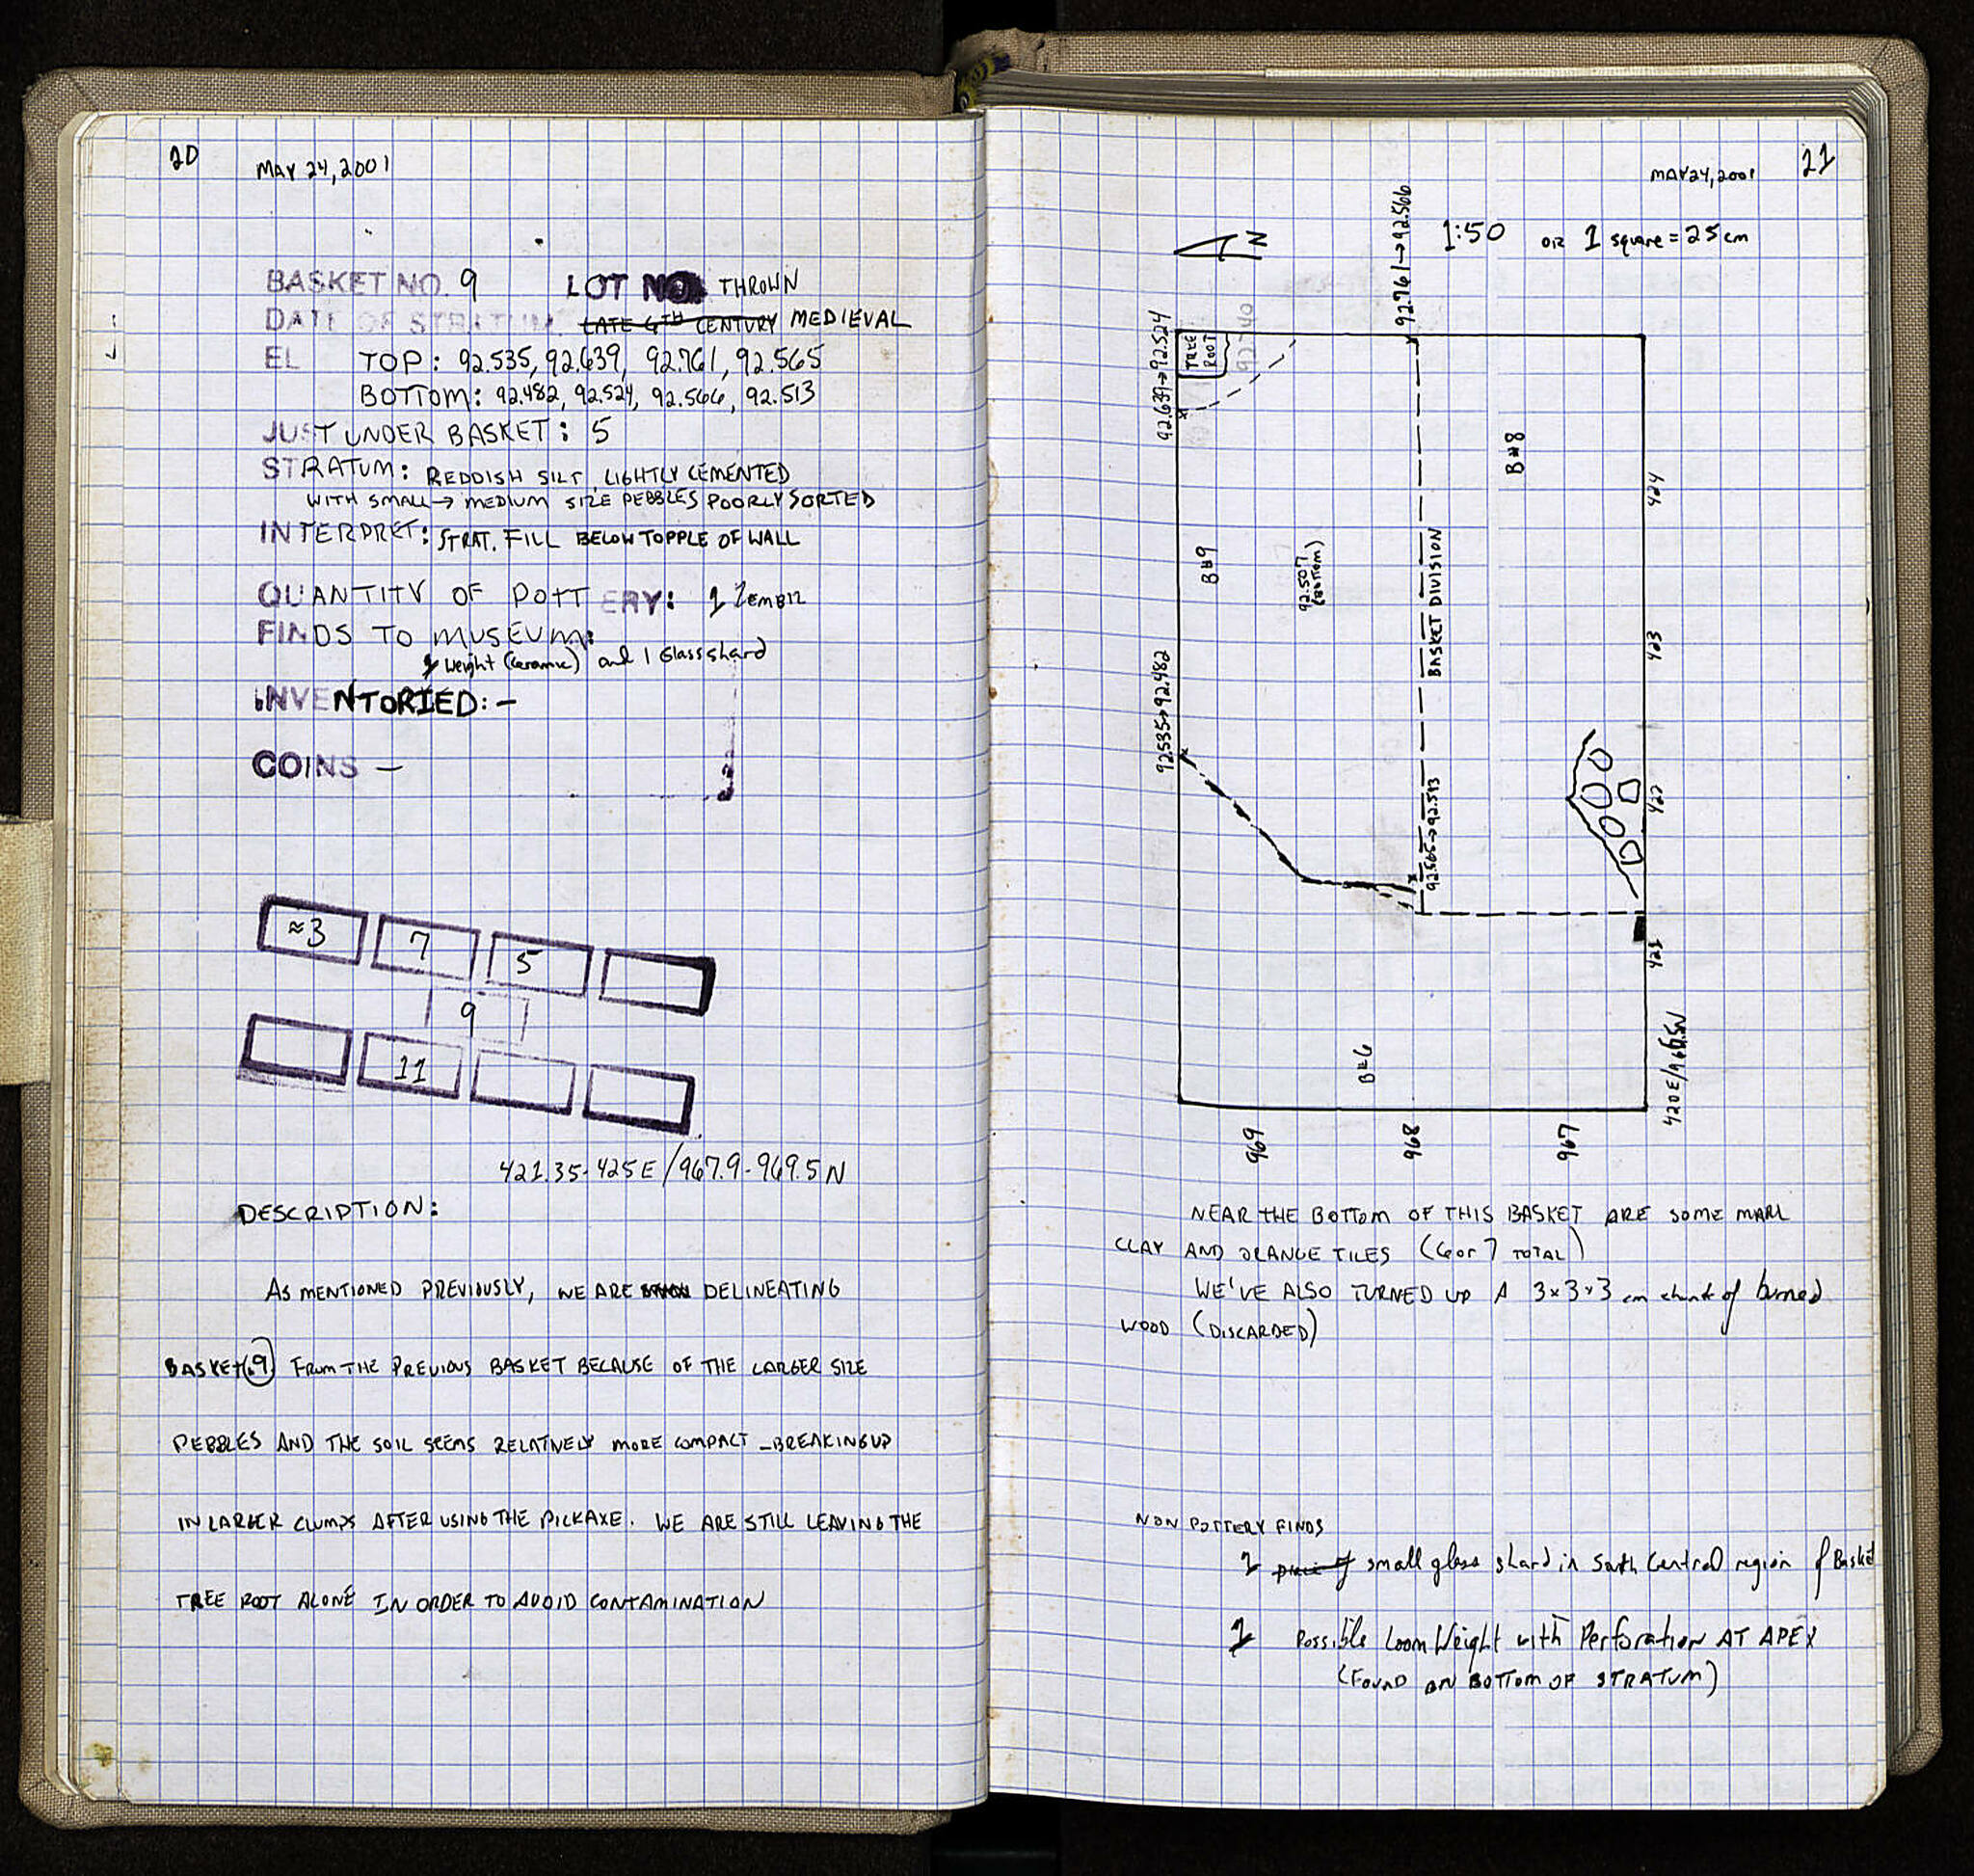 20
MAY 24, 2001
BASKET NO. 9 LOT NO. THROWN
DATE OF STRATUM: LATE 6TH CENTURY MEDIEVAL
EL TOP: 92.535, 92.639, 92.761, 92.565
BOTTOM: 92.482, 92.524, 92.566, 92.513
JUST UNDER BASKET: 5
STRATUM: REDDISH SILT, LIGHTLY CEMENTED
WITH SMALL → MEDIUM SIZE PEBBLES POORLY SORTED
INTERPRET: STRAT. FILL BELOW TOPPLE OF WALL
QUANTITY OF POTTERY: 1 ZEMBIL
FINDS TO MUSEUM:
1 Weight (Ceramic) and 1 Glass shard
INVENTORIED: -
COINS -
≈3 7 5
9
11
421.35-425E/967.9-969.5N
DESCRIPTION:
AS MENTIONED PREVIOUSLY, WE ARE DELINEATING
BASKET (9) FROM THE PREVIOUS BASKET BECAUSE OF THE LARGER SIZE
PEBBLES AND THE SOIL SEEMS RELATIVELY MORE COMPACT - BREAKING UP
IN LARGER CLUMPS AFTER USING THE PICKAXE. WE ARE STILL LEAVING THE
TREE ROOT ALONE IN ORDER TO AVOID CONTAMINATION
MAY 24, 2001
21
N
1:50 OR 1 square = 25 cm
92.761→92.566
92.639→92.524
TREE
ROOT
B#8
B#9
92.507
(BOTTOM)
BASKET DIVISION
424
423
92.535→92.482
422
92.565→92.513
421
B#6
420E/966.5N
969
968
967
NEAR THE BOTTOM OF THIS BASKET ARE SOME MARL
CLAY AND ORANGE TILES (6 or 7 TOTAL)
WE'VE ALSO TURNED UP A 3x3x3 cm chunk of burned
WOOD (DISCARDED)
NON POTTERY FINDS
1 piece of small glass shard in South Central region of Basket
1 Possible Loom Weight with Perforation AT APEX
(FOUND ON BOTTOM OF STRATUM)